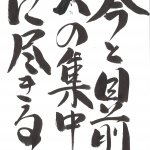 今と目前
への集中
に尽きる